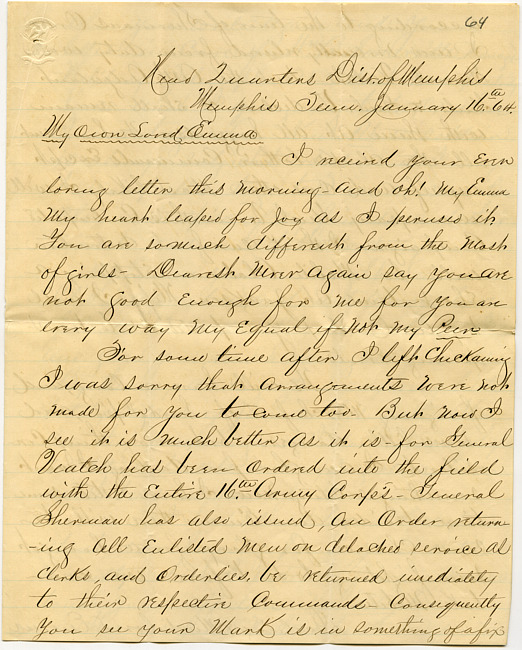 64
Head Quarters Dist. of Memphis
Memphis Tenn. January 16th 64.
My Own Loved Emma
I receivd your Ever
loving letter this morning - and oh! My Emma
My heart leaped for Joy as I perused it.
You are so much different from the Most
of girls - Dearest Never Again say you are
not good Enough for me for you are
every way My Equal if not my Peer.
For some time after I left Chickaming
I was sorry that arrangements were not
made for you to come too - But now I
see it is much better as it is - for General
Veatch has been Ordered into the field
with the Entire 16th Army Corps - General
Sherman has also issued, An Order return-
-ing All Enlisted Men on detached service as
Clerks, and Orderlies, be returned imediately
to their respective Commands - Consequently
You see your Mark is in something of a fix